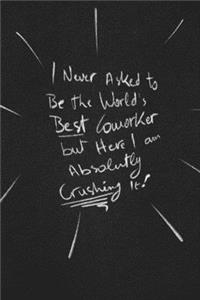 I Never Asked to
Be the World's
Best Coworker
but Here I am
Absolutly
Crushing It!